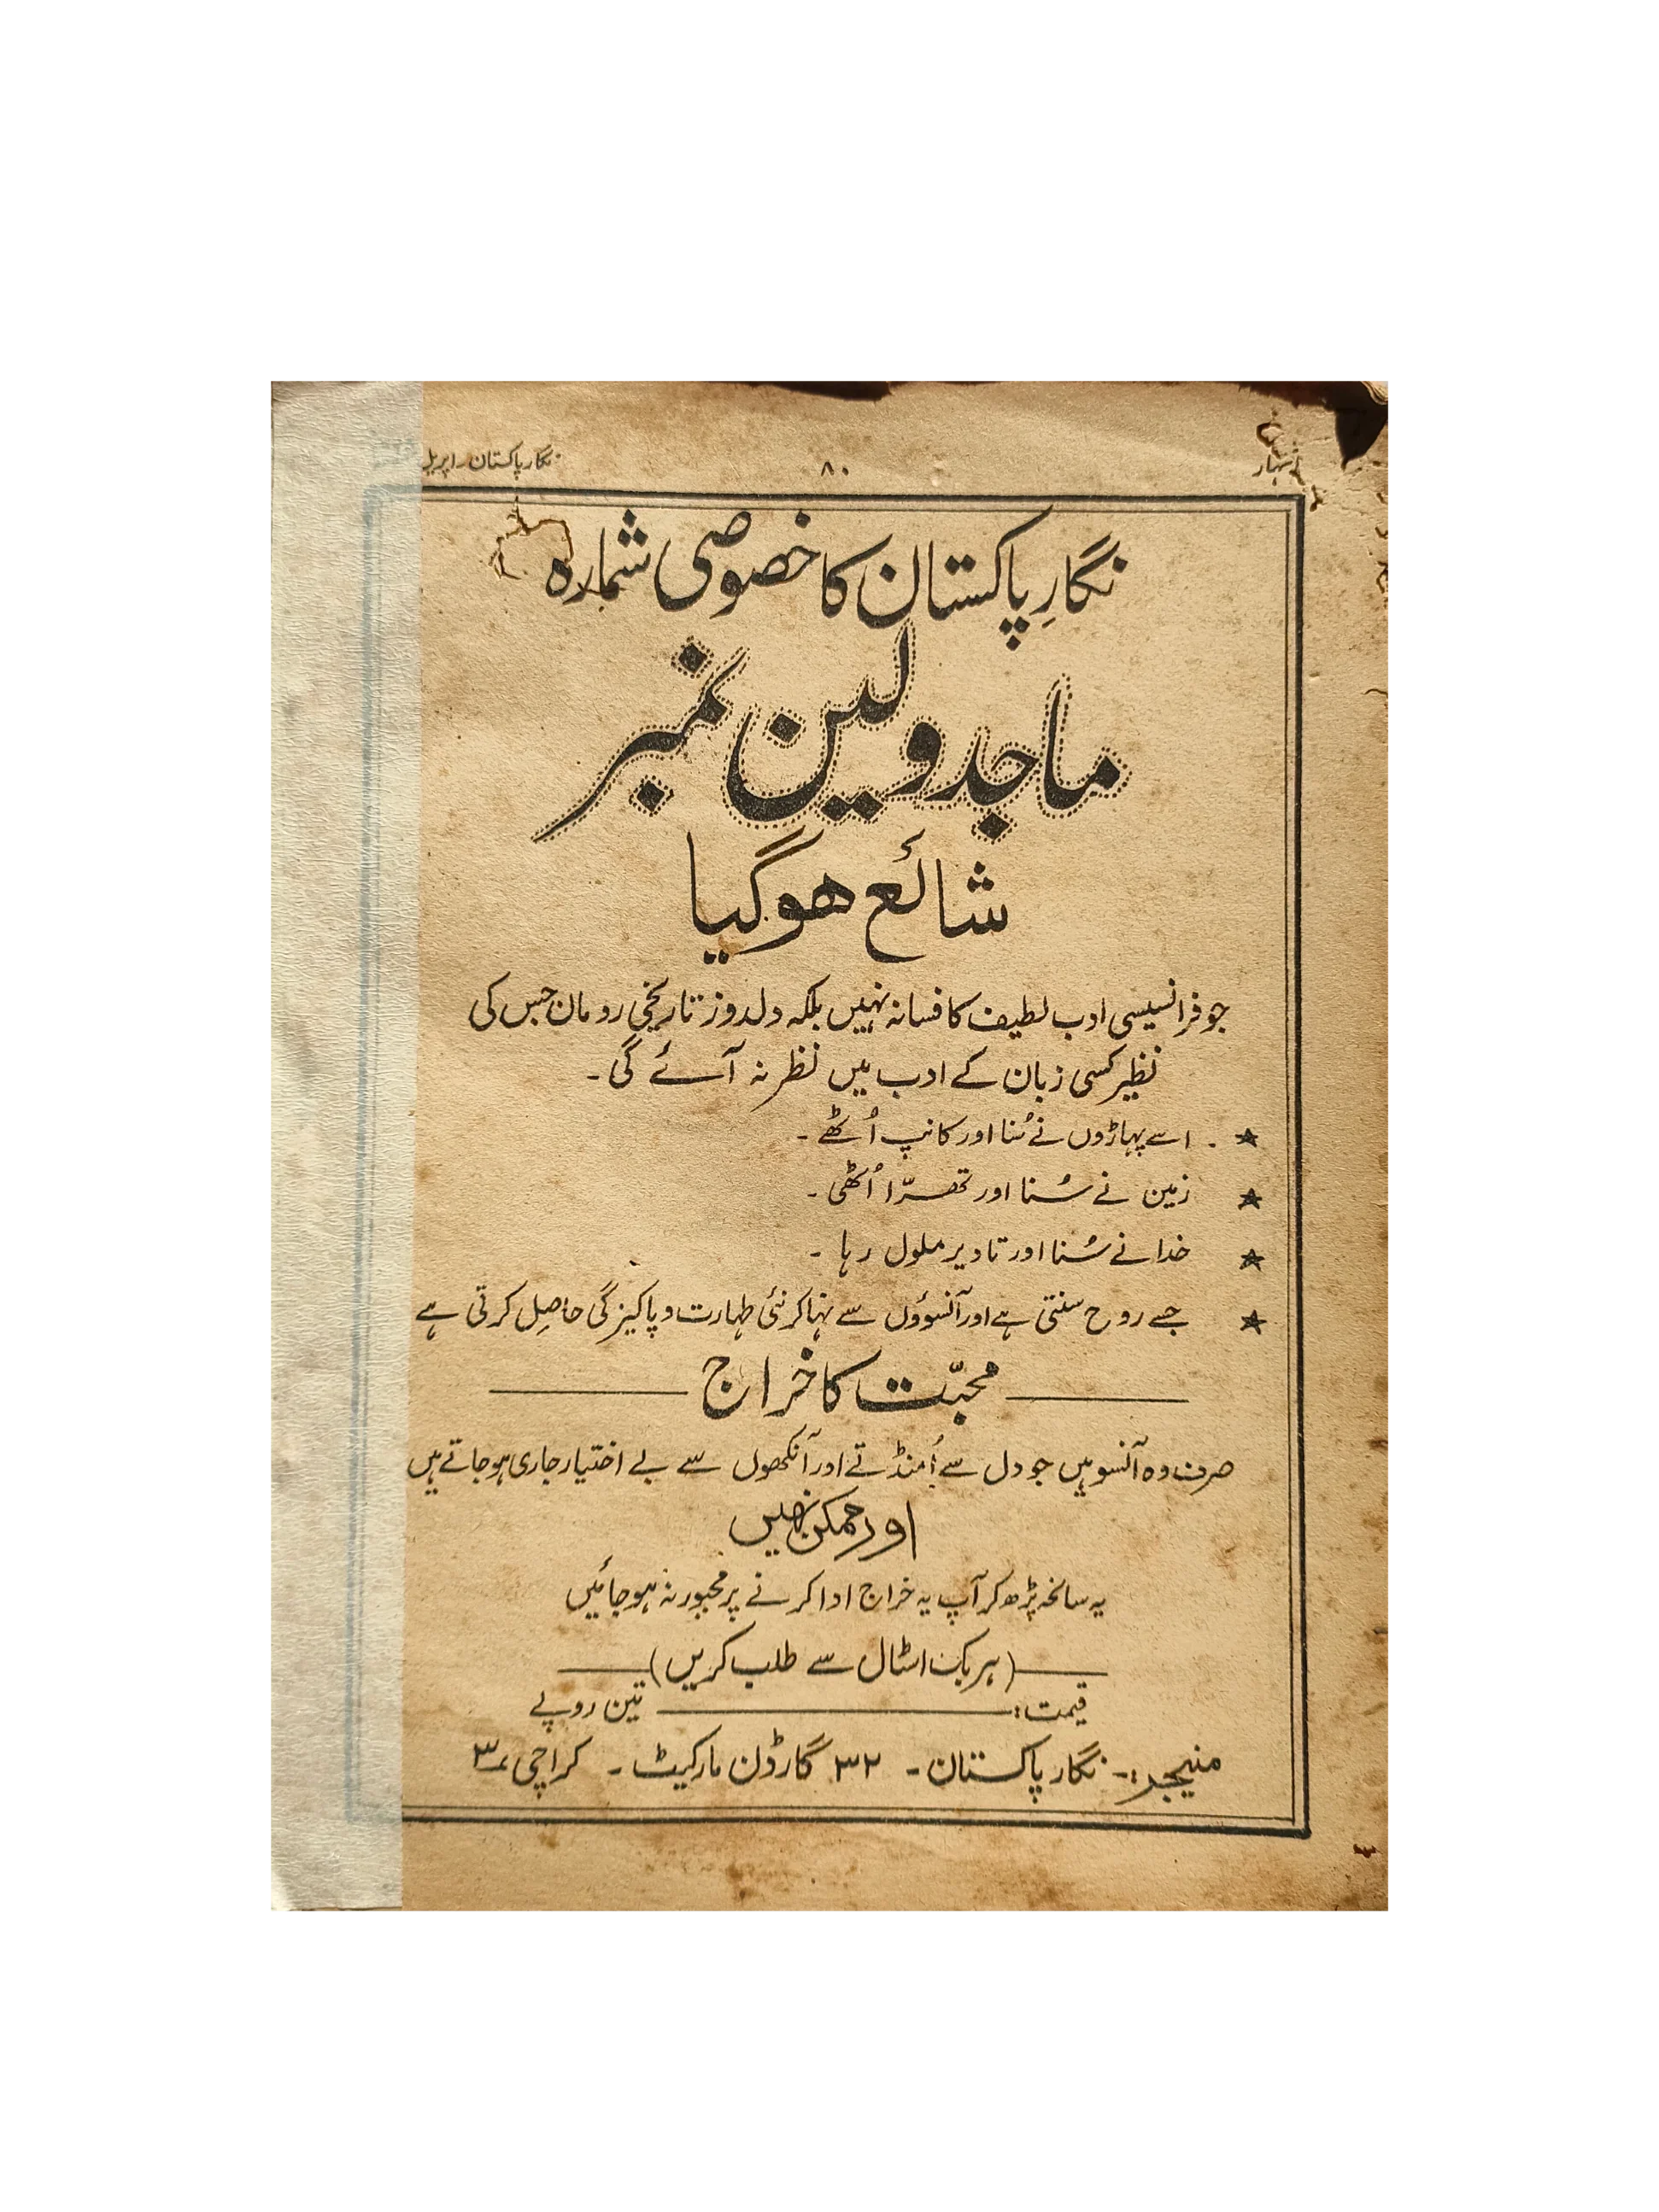 اشتہار ۸۰ نگار پاکستان۔ اپریل
نگارِ پاکستان کا خصوصی شمارہ
ماجدولین نمبر
شائع ھوگیا
جو فرانسیسی ادب لطیف کا فسانہ نہیں بلکہ دلدوز تاریخی رومان جس کی
نظیر کسی زبان کے ادب میں نظر نہ آئے گی۔
★ ۔ اسے پہاڑوں نے سُنا اور کانپ اُٹھے۔
★ زمین نے سُنا اور تھرّا اُٹھی۔
★ خدا نے سُنا اور تا دیر ملول رہا۔
★ جسے روح سنتی ہے اور آنسوؤں سے نہا کر نئی طہارت و پاکیزگی حاصِل کرتی ہے
محبّت کا خراج
صرف وہ آنسو ہیں جو دل سے اُمنڈتے اور آنکھوں سے بے اختیار جاری ہو جاتے ہیں
اور ممکن نھیں
یہ سانحہ پڑھ کر آپ یہ خراج ادا کرنے پر مجبور نہ ہو جائیں
(ہر بک اسٹال سے طلب کریں)
قیمت: تین روپے
منیجر:۔ نگار پاکستان۔ ۳۲ گارڈن مارکیٹ۔ کراچی ۳